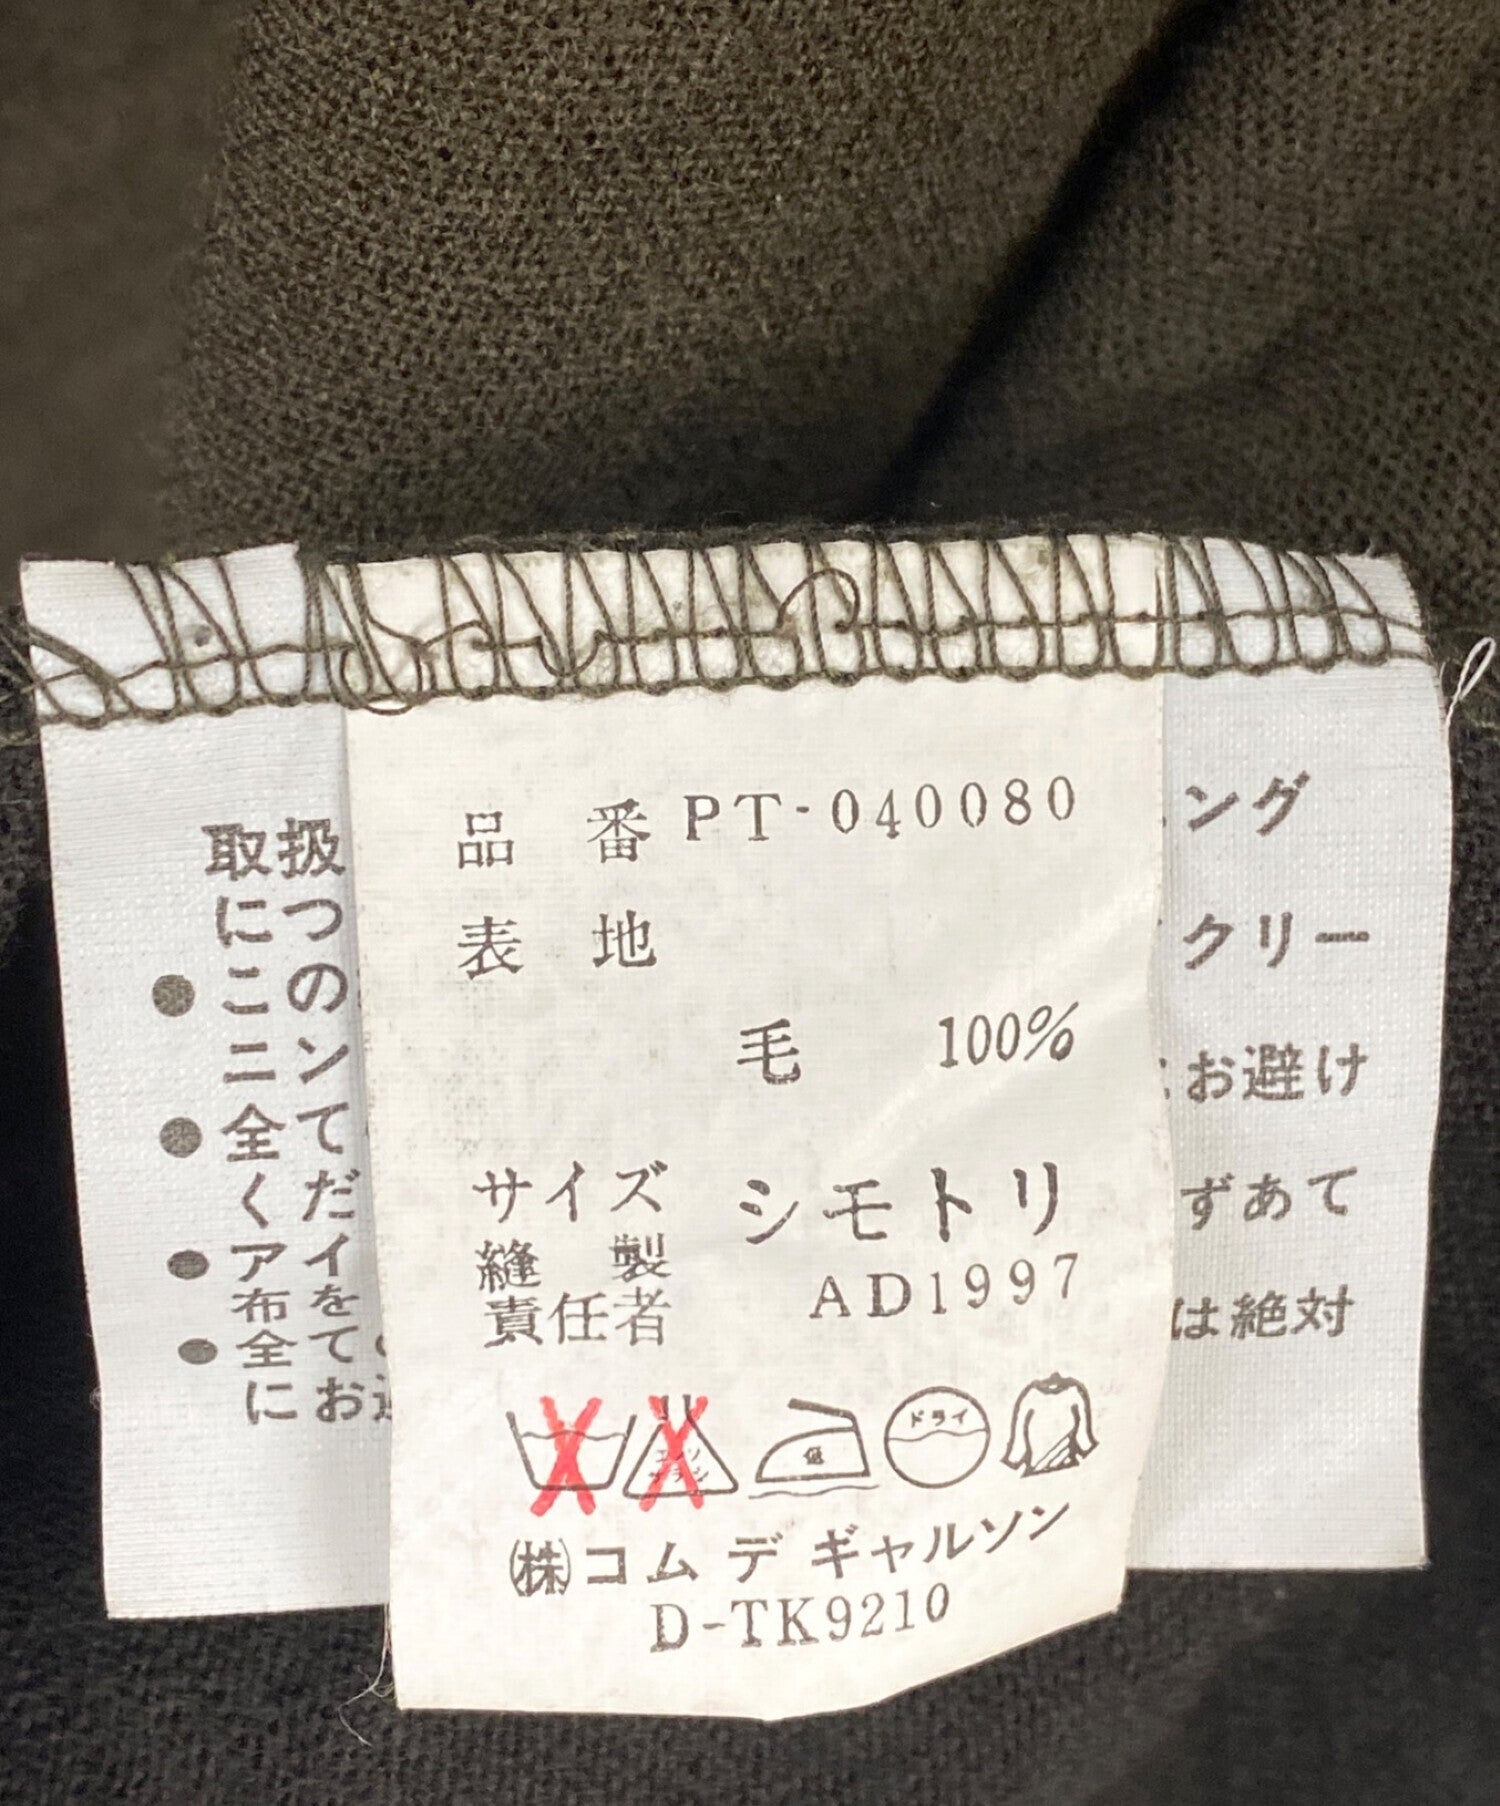 品番 PT-040080
表地
毛 100%
サイズ
縫製 シモトリ
責任者 AD1997
低
ドライ
㈱コム デ ギャルソン
D-TK9210
取扱
につ
● この
ニン
● 全て
くだ
● アイ
布を
● 全て
にお
ング
クリー
お避け
ずあて
は絶対